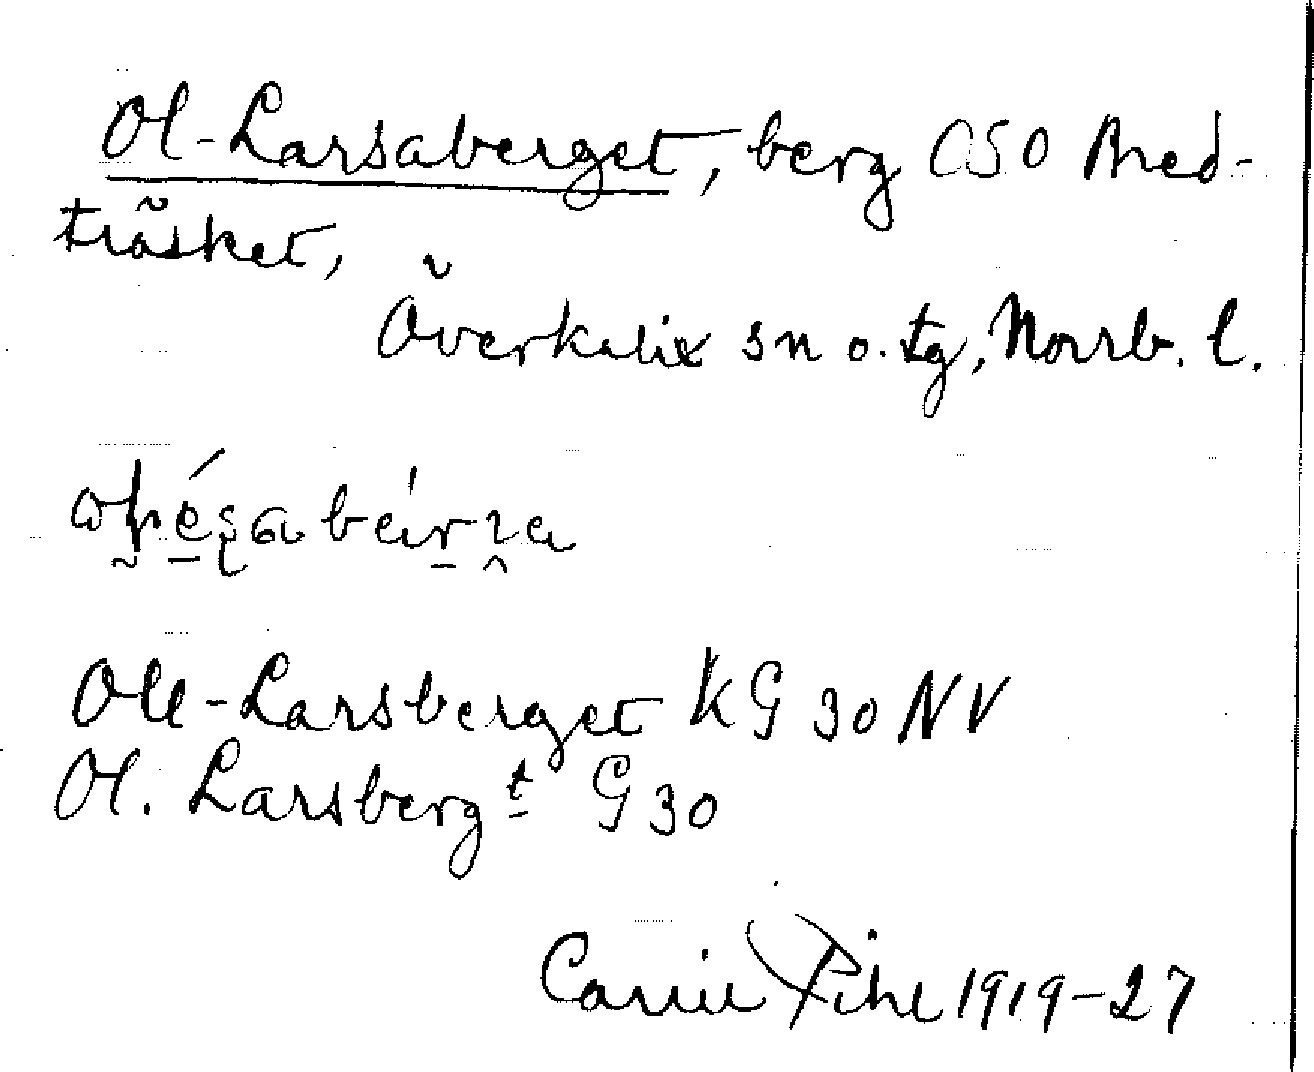 Ol-Larsaberget, berg OSO Bred-
träsket,
Överkalix sn o. tg, Norrb. l.
Oll-Larsberget KG 30 NV
Ol. Larsberg t G 30
Carrie Pihl 1919-27